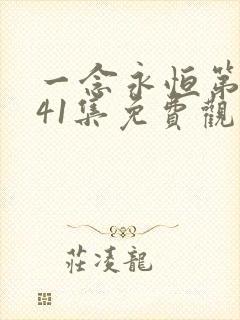 一念永恒第
41集免費觀
莊凌龍